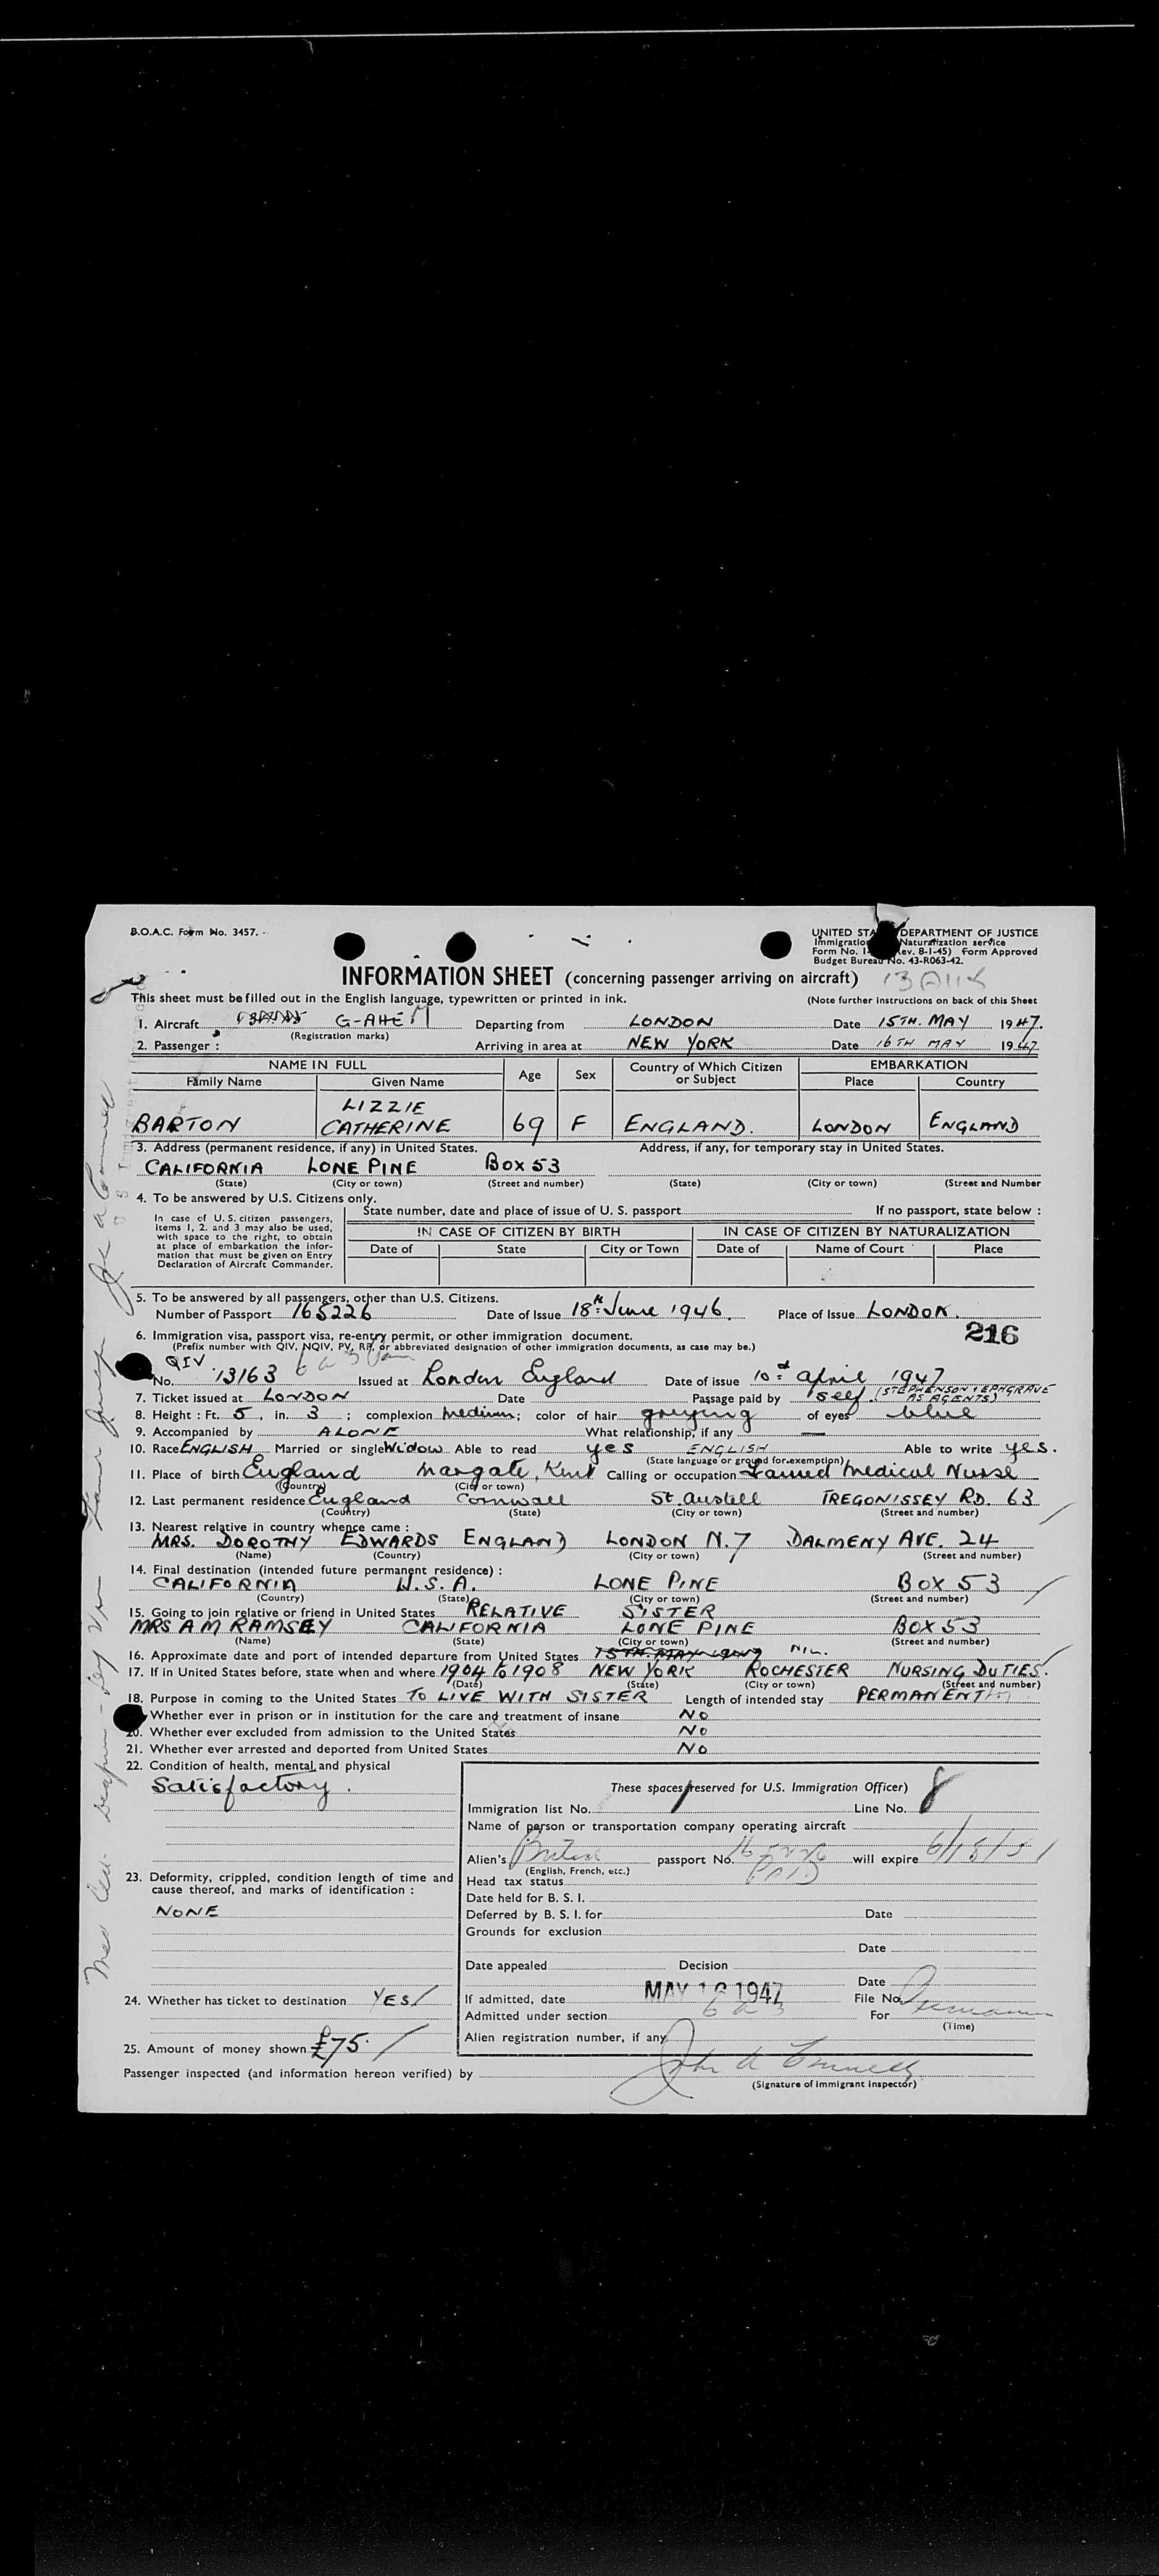 B.O.A.C. Form No. 3457.
UNITED STA DEPARTMENT OF JUSTICE
Immigratio Naturalization service
Form No. I- ev. 8-1-45) Form Approved
Budget Bureau No. 43-R063-42.
INFORMATION SHEET (concerning passenger arriving on aircraft)
This sheet must be filled out in the English language, typewritten or printed in ink.
(Note further instructions on back of this Sheet
1. Aircraft G-AHEM Departing from LONDON Date 15TH. MAY 1947.
(Registration marks)
2. Passenger : Arriving in area at NEW YORK Date 16TH MAY 1947
NAME IN FULL Age Sex Country of Which Citizen or Subject EMBARKATION
Family Name Given Name Place Country
LIZZIE
BARTON CATHERINE 69 F ENGLAND. LONDON ENGLAND
3. Address (permanent residence, if any) in United States. Address, if any, for temporary stay in United States.
CALIFORNIA LONE PINE BOX 53
(State) (City or town) (Street and number) (State) (City or town) (Street and Number
4. To be answered by U.S. Citizens only.
State number, date and place of issue of U. S. passport If no passport, state below :
In case of U. S. citizen passengers,
items 1, 2, and 3 may also be used,
with space to the right, to obtain
at place of embarkation the infor-
mation that must be given on Entry
Declaration of Aircraft Commander.
IN CASE OF CITIZEN BY BIRTH IN CASE OF CITIZEN BY NATURALIZATION
Date of State City or Town Date of Name of Court Place
5. To be answered by all passengers, other than U.S. Citizens.
Number of Passport 165226 Date of Issue 18th June 1946. Place of Issue LONDON.
216
6. Immigration visa, passport visa, re-entry permit, or other immigration document.
(Prefix number with QIV, NQIV, PV, RP, or abbreviated designation of other immigration documents, as case may be.)
QIV
No. 13163 Issued at London England Date of issue 10th April 1947
7. Ticket issued at LONDON Date Passage paid by self (STEPHENSON & EPHGRAVE AS AGENTS)
8. Height : Ft. 5, in. 3 ; complexion medium; color of hair greying of eyes blue
9. Accompanied by ALONE What relationship, if any —
10. Race ENGLISH Married or single Widow Able to read yes ENGLISH Able to write yes.
(State language or ground for exemption)
11. Place of birth England Margate, Kent Calling or occupation Trained Medical Nurse
(Country) (City or town)
12. Last permanent residence England Cornwall St. Austell TREGONISSEY RD. 63
(Country) (State) (City or town) (Street and number)
13. Nearest relative in country whence came :
MRS. DOROTHY EDWARDS ENGLAND LONDON N.7 DALMENY AVE. 24
(Name) (Country) (City or town) (Street and number)
14. Final destination (intended future permanent residence) :
CALIFORNIA U.S.A. LONE PINE BOX 53
(Country) (State) (City or town) (Street and number)
15. Going to join relative or friend in United States RELATIVE SISTER
MRS A M RAMSEY CALIFORNIA LONE PINE BOX 53
(Name) (State) (City or town) (Street and number)
16. Approximate date and port of intended departure from United States 15TH. MAY 1947 NIL.
17. If in United States before, state when and where 1904 to 1908 NEW YORK ROCHESTER NURSING DUTIES.
(Date) (State) (City or town) (Street and number)
18. Purpose in coming to the United States TO LIVE WITH SISTER Length of intended stay PERMANENT
Whether ever in prison or in institution for the care and treatment of insane NO
20. Whether ever excluded from admission to the United States NO
21. Whether ever arrested and deported from United States NO
22. Condition of health, mental and physical
Satisfactory.
These spaces reserved for U.S. Immigration Officer)
Immigration list No. Line No. 8
Name of person or transportation company operating aircraft
Alien's British passport No. 165226 will expire 6/18/51
(English, French, etc.)
Head tax status PAID
23. Deformity, crippled, condition length of time and
cause thereof, and marks of identification :
NONE
Date held for B. S. I.
Deferred by B. S. I. for Date
Grounds for exclusion
Date
Date appealed Decision
Date
24. Whether has ticket to destination YES
If admitted, date MAY 16 1947 File No.
Admitted under section 6 a 3 For
(Time)
Alien registration number, if any
25. Amount of money shown £75.
Passenger inspected (and information hereon verified) by John A Connell
(Signature of immigrant inspector)